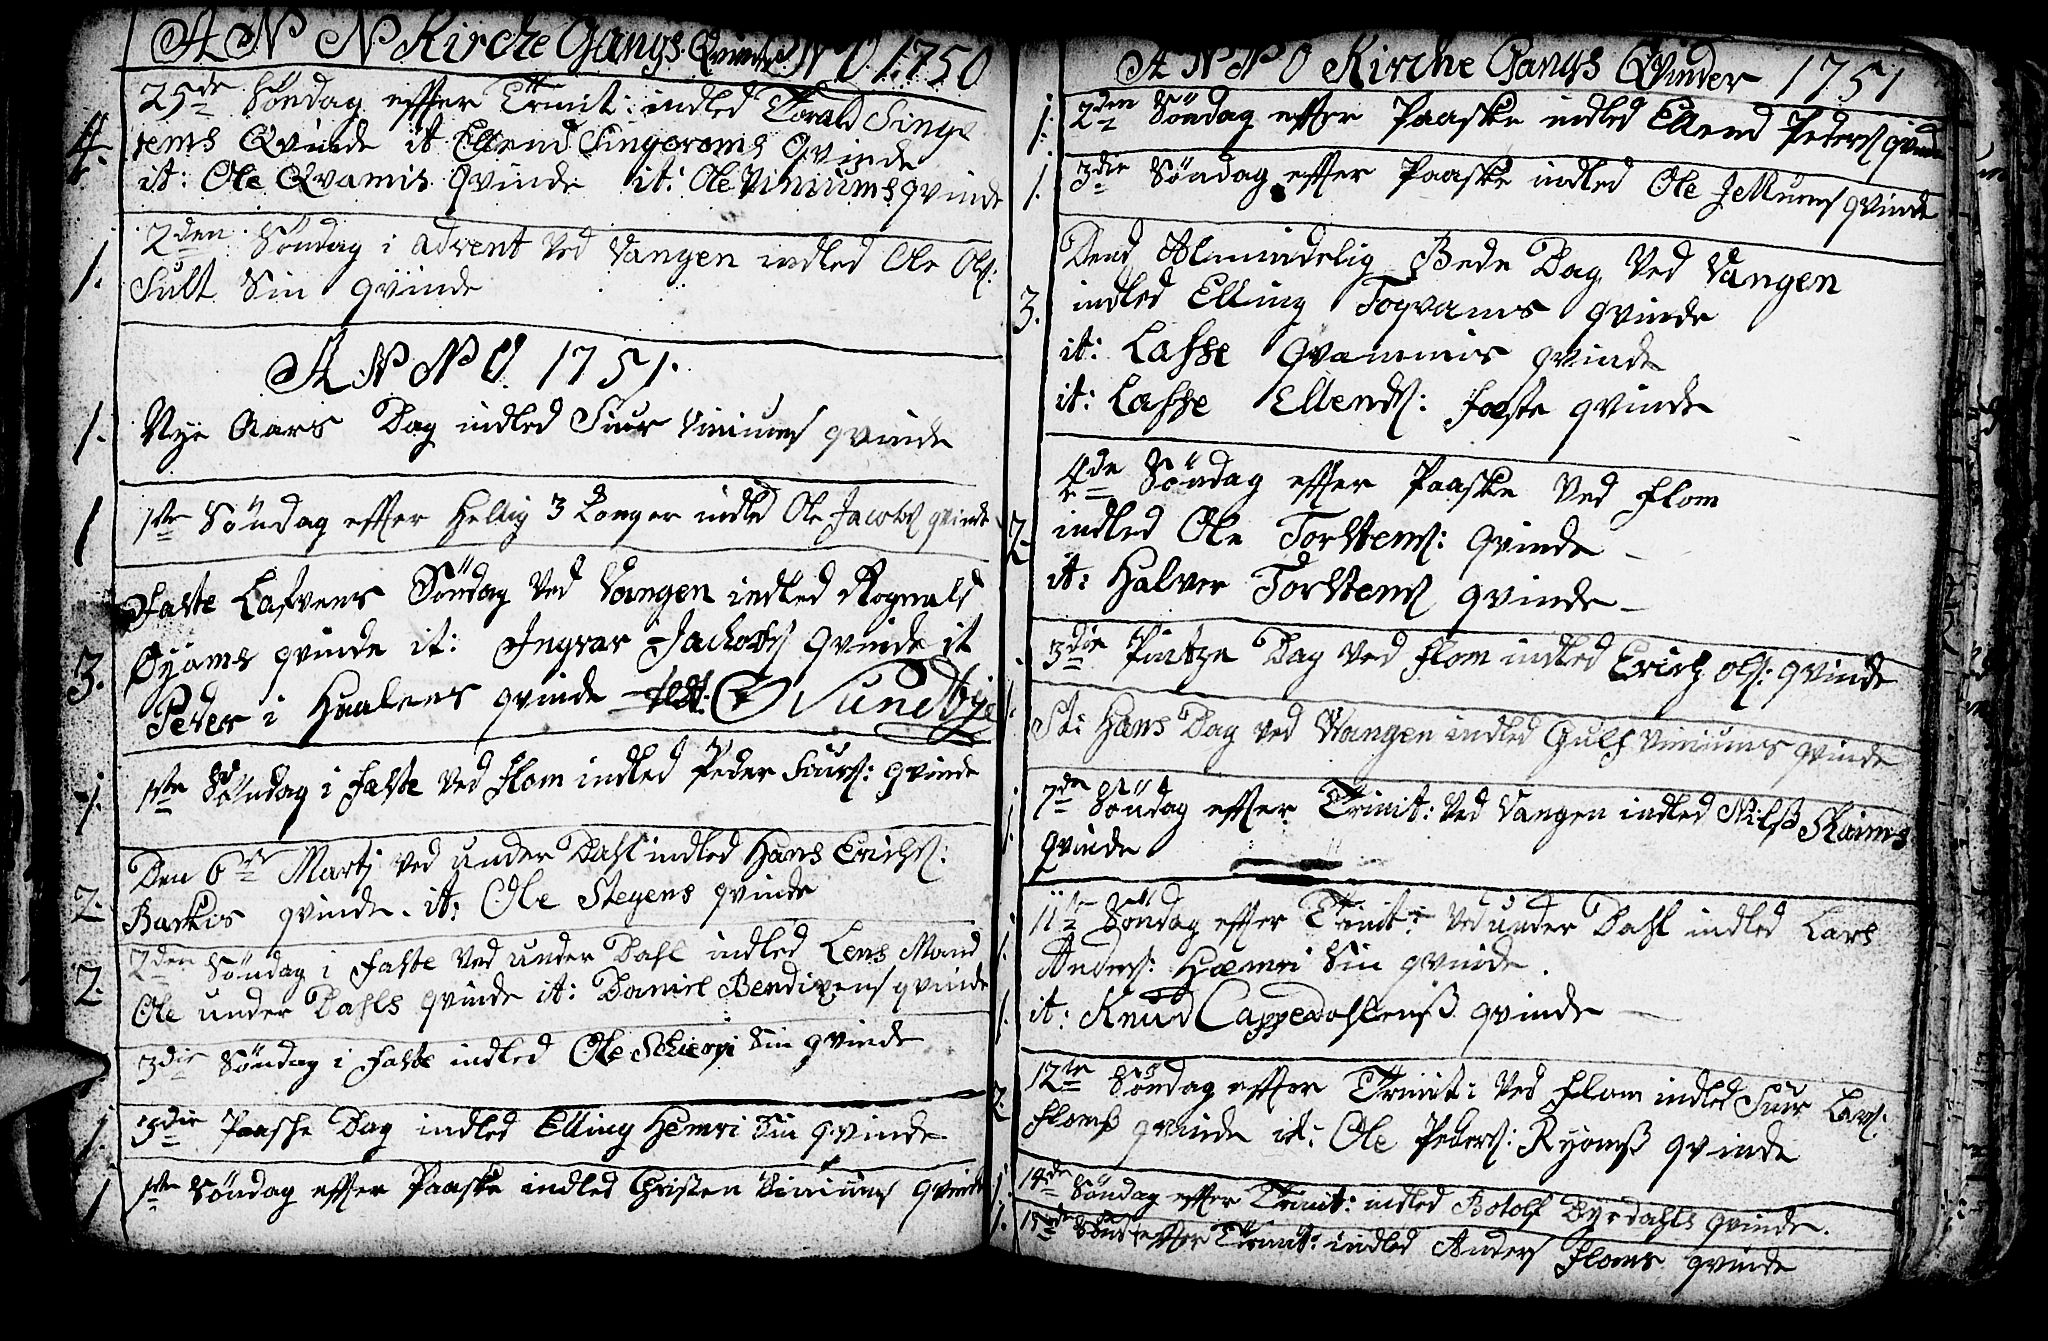 A N N Kirche Gangs Qvinder N O 1750
25de Søndag effter Trinit: indled Torald Singe
4. rems Qvinde it Ellend Singerems Qvinde
it: Ole Qvamis qvinde it: Ole Viniums qvinde
2den Søndag i advent Ved Vangen indled Ole Ols:
1. Sult Sin qvinde
A N N O 1751.
1. Nye Aars Dag indled Siur Viniums qvinde
1 1ste Søndag effter Hellig 3 Konger indled Ole Jacobs qvinde
Faste Lafvens Søndag Ved Vangen indled Rognald
Øyams qvinde it: Ingvar Jackobs Qvinde it
3. Peder i Haalens qvinde
1. 1ste Søndag i Faste Ved Flom indled Peder Siurs: qvinde
Den 6te Martj Ved under Dahl indled Hans Erichs:
2. Barkis qvinde. it: Ole Stegens qvinde
2den Søndag i Faste Ved under Dahl indled Lens Mand
2. Ole under Dahls qvinde it: Daniel Bendixens qvinde
3die Søndag i Faste indled Ole Schiergi Sin qvinde
1. 3die Paasche Dag indled Elling Hemri Sin qvinde
1 1ste Søndag effter Paaske indled Christen Viniums qvinde
A N N O Kirche Gangs Qvinder 1751
1. 2den Søndag effter Paaske indled Ellend Peders qvinde
1. 3die Søndag effter Paaske indled Ole Jellums qvinde
Dend Almindelig Bede Dag Ved Vangen
3. indled Elling Toqvams qvinde
it: Lasse Qvammis qvinde
it: Lasse Ellends: Foeste qvinde
4de Søndag effter Paaske Ved Flom
2. indled Ole Torstens: Qvinde
it: Halver Torstens qvinde
3die Pintze Dag Ved Flom indled Erich Ols: qvinde
1. St: Hans Dag ved Vangen indled Gulf Viniums qvinde
1. 7de Søndag effter Trinit: Ved Vangen indled Nilss Skaims
qvinde
11te Søndag effter Trinit: Ved under Dahl indled Lars
1. Anders: Hæmri Sin qvinde.
1. it: Knud Cappedahlenss qvinde
12te Søndag effter Trinit: Ved Flom indled Siur Lars:
2. Flomss qvinde it: Ole Peders: Ryomss qvinde
1. 14de Søndag effter Trinit: indled Botolf Dyrdahls qvinde.
1. 15de Sønd: effter Trinit: indled Anders Floms qvinde